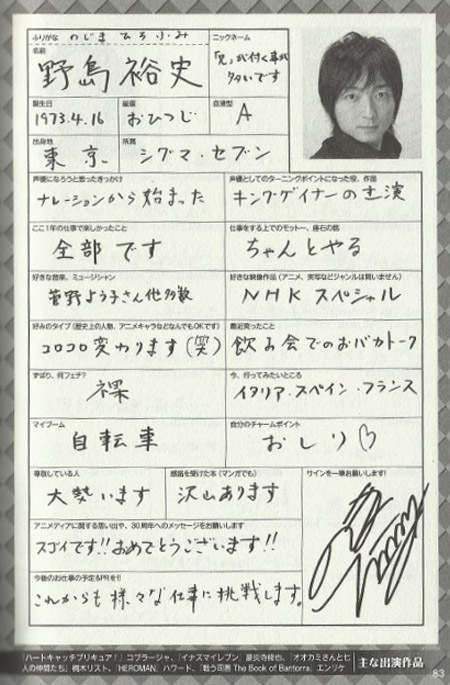 ふりがな のじま ひろふみ
名前 野島裕史
ニックネーム
「兄」が付く事が
多いです
誕生日 1973.4.16
星座 おひつじ
血液型 A
出身地 東京
所属 シグマ・セブン
声優になろうと思ったきっかけ
ナレーションから始まった
声優としてのターニングポイントになった役、作品
キングゲイナーの主演
ここ1年の仕事で楽しかったこと
全部です
仕事をする上でのモットー、座右の銘
ちゃんとやる
好きな音楽、ミュージシャン
菅野よう子さん他多数
好きな映像作品(アニメ、実写などジャンルは問いません)
NHKスペシャル
好みのタイプ(歴史上の人物、アニメキャラなどなんでもOKです)
コロコロ変わります(笑)
最近笑ったこと
飲み会でのおバカトーク
ずばり、何フェチ?
裸
今、行ってみたいところ
イタリア・スペイン・フランス
マイブーム
自転車
自分のチャームポイント
おしり♡
尊敬している人
大勢います
感銘を受けた本(マンガでも)
沢山あります
サインを一筆お願いします!
アニメディアに関する思い出や、30周年へのメッセージをお願いします
スゴイです!!おめでとうございます!!
今後のお仕事の予定&PRを!!
これからも様々な仕事に挑戦します。
「ハートキャッチプリキュア!」コブラージャ、「イナズマイレブン」豪炎寺修也、「オオカミさんと七
人の仲間たち」桐木リスト、「HEROMAN」ハワード、「戦う司書 The Book of Bantorra」エンリケ
主な出演作品
83